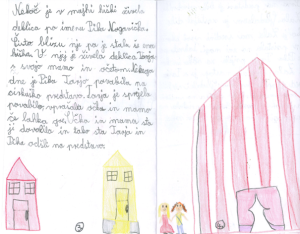 Nekoč je v majhni hišli živela
deklica po imenu Pika Nogavička.
Čuto blizu nje pa je stala še ena
hiška. V njej je živela deklica Tasja
s svojo mamo in očetom. Nekega
dne je Pika Tasjo povabila na
cirkuško predstavo. Tasja je sprejela
povabilo, vprašala očka in mamo
če lahko gre. Očka in mama sta
ji dovolila in tako sta Tasja in
Pika odšli na predstavo.